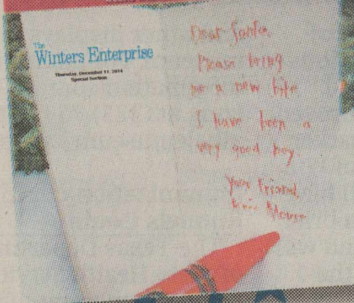 The
Winters Enterprise
Thursday, December 11, 2014
Special Section
Dear Santa,
Please bring
me a new bike
I have been a
very good boy.
Your Friend,